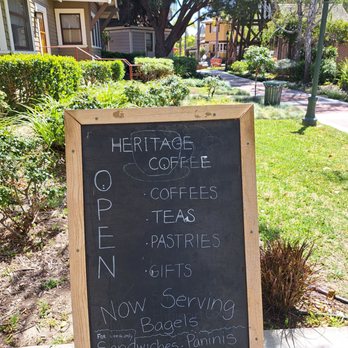 HERITAGE
COFFEE
OPEN
· COFFEES
· TEAS
· PASTRIES
· GIFTS
NOW SERVING
BAGELS
SANDWICHES, PANINIS